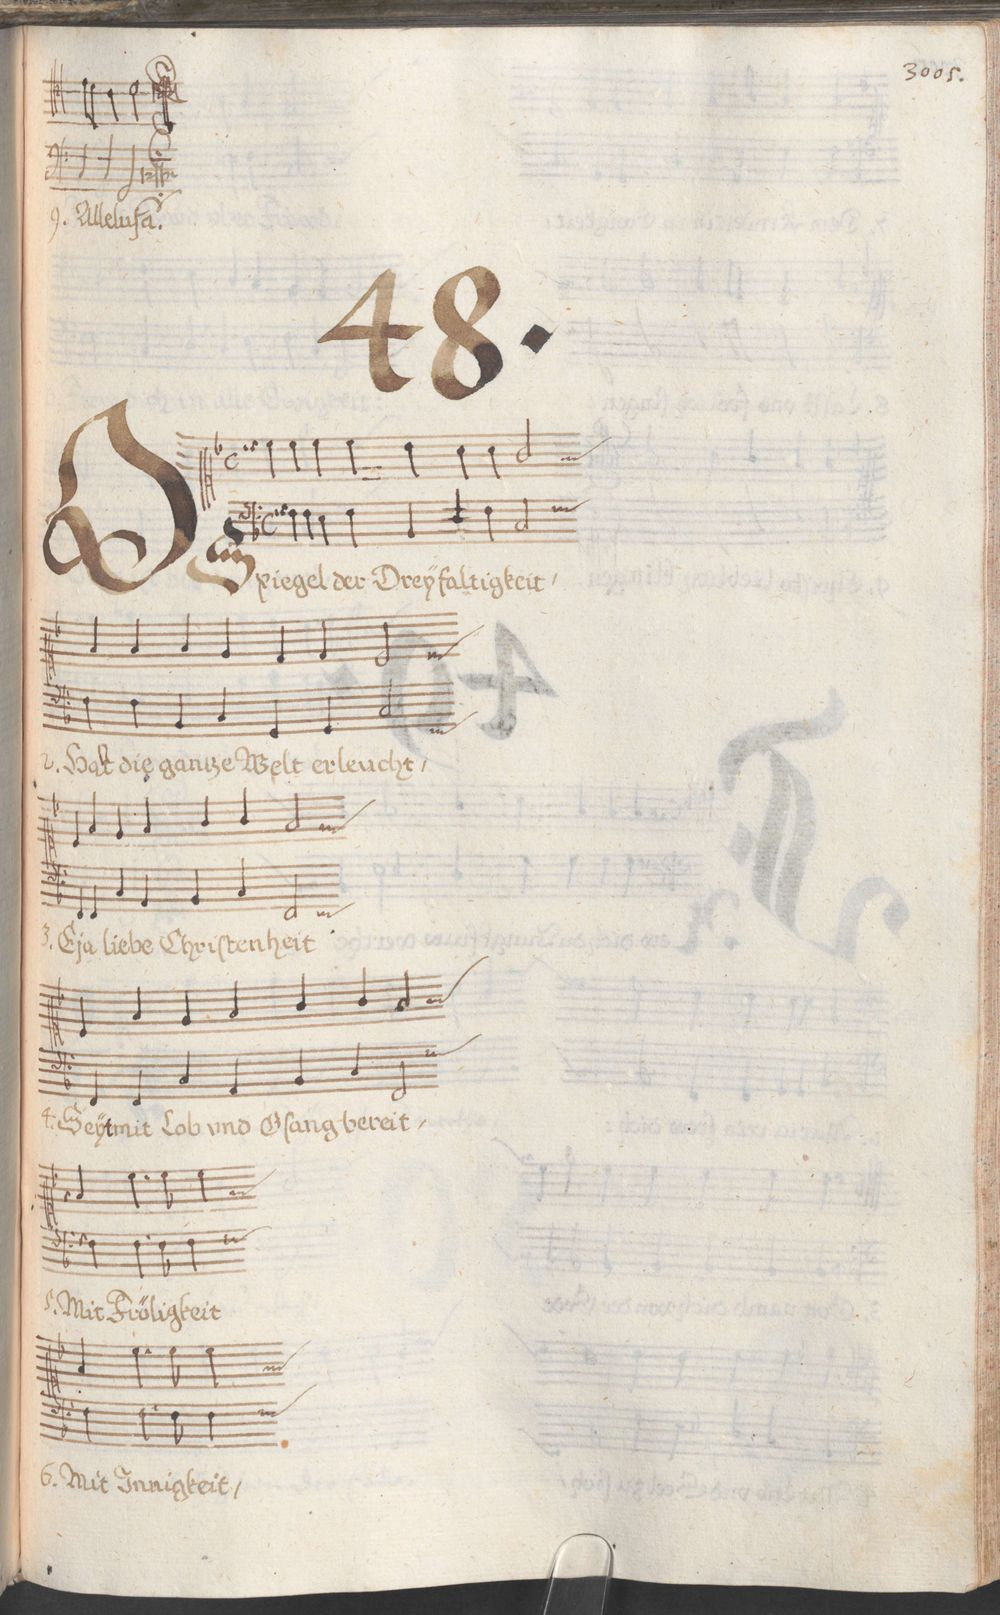 3005.
9. Alleluja.
48.
O Spiegel der Dreyfaltigkeit /
2. Hat die gantze Welt erleucht /
3. Eja liebe Christenheit
4. Seyt mit Lob vnd Gsang bereit /
5. Mit Fröligkeit
6. Mit Innigkeit /